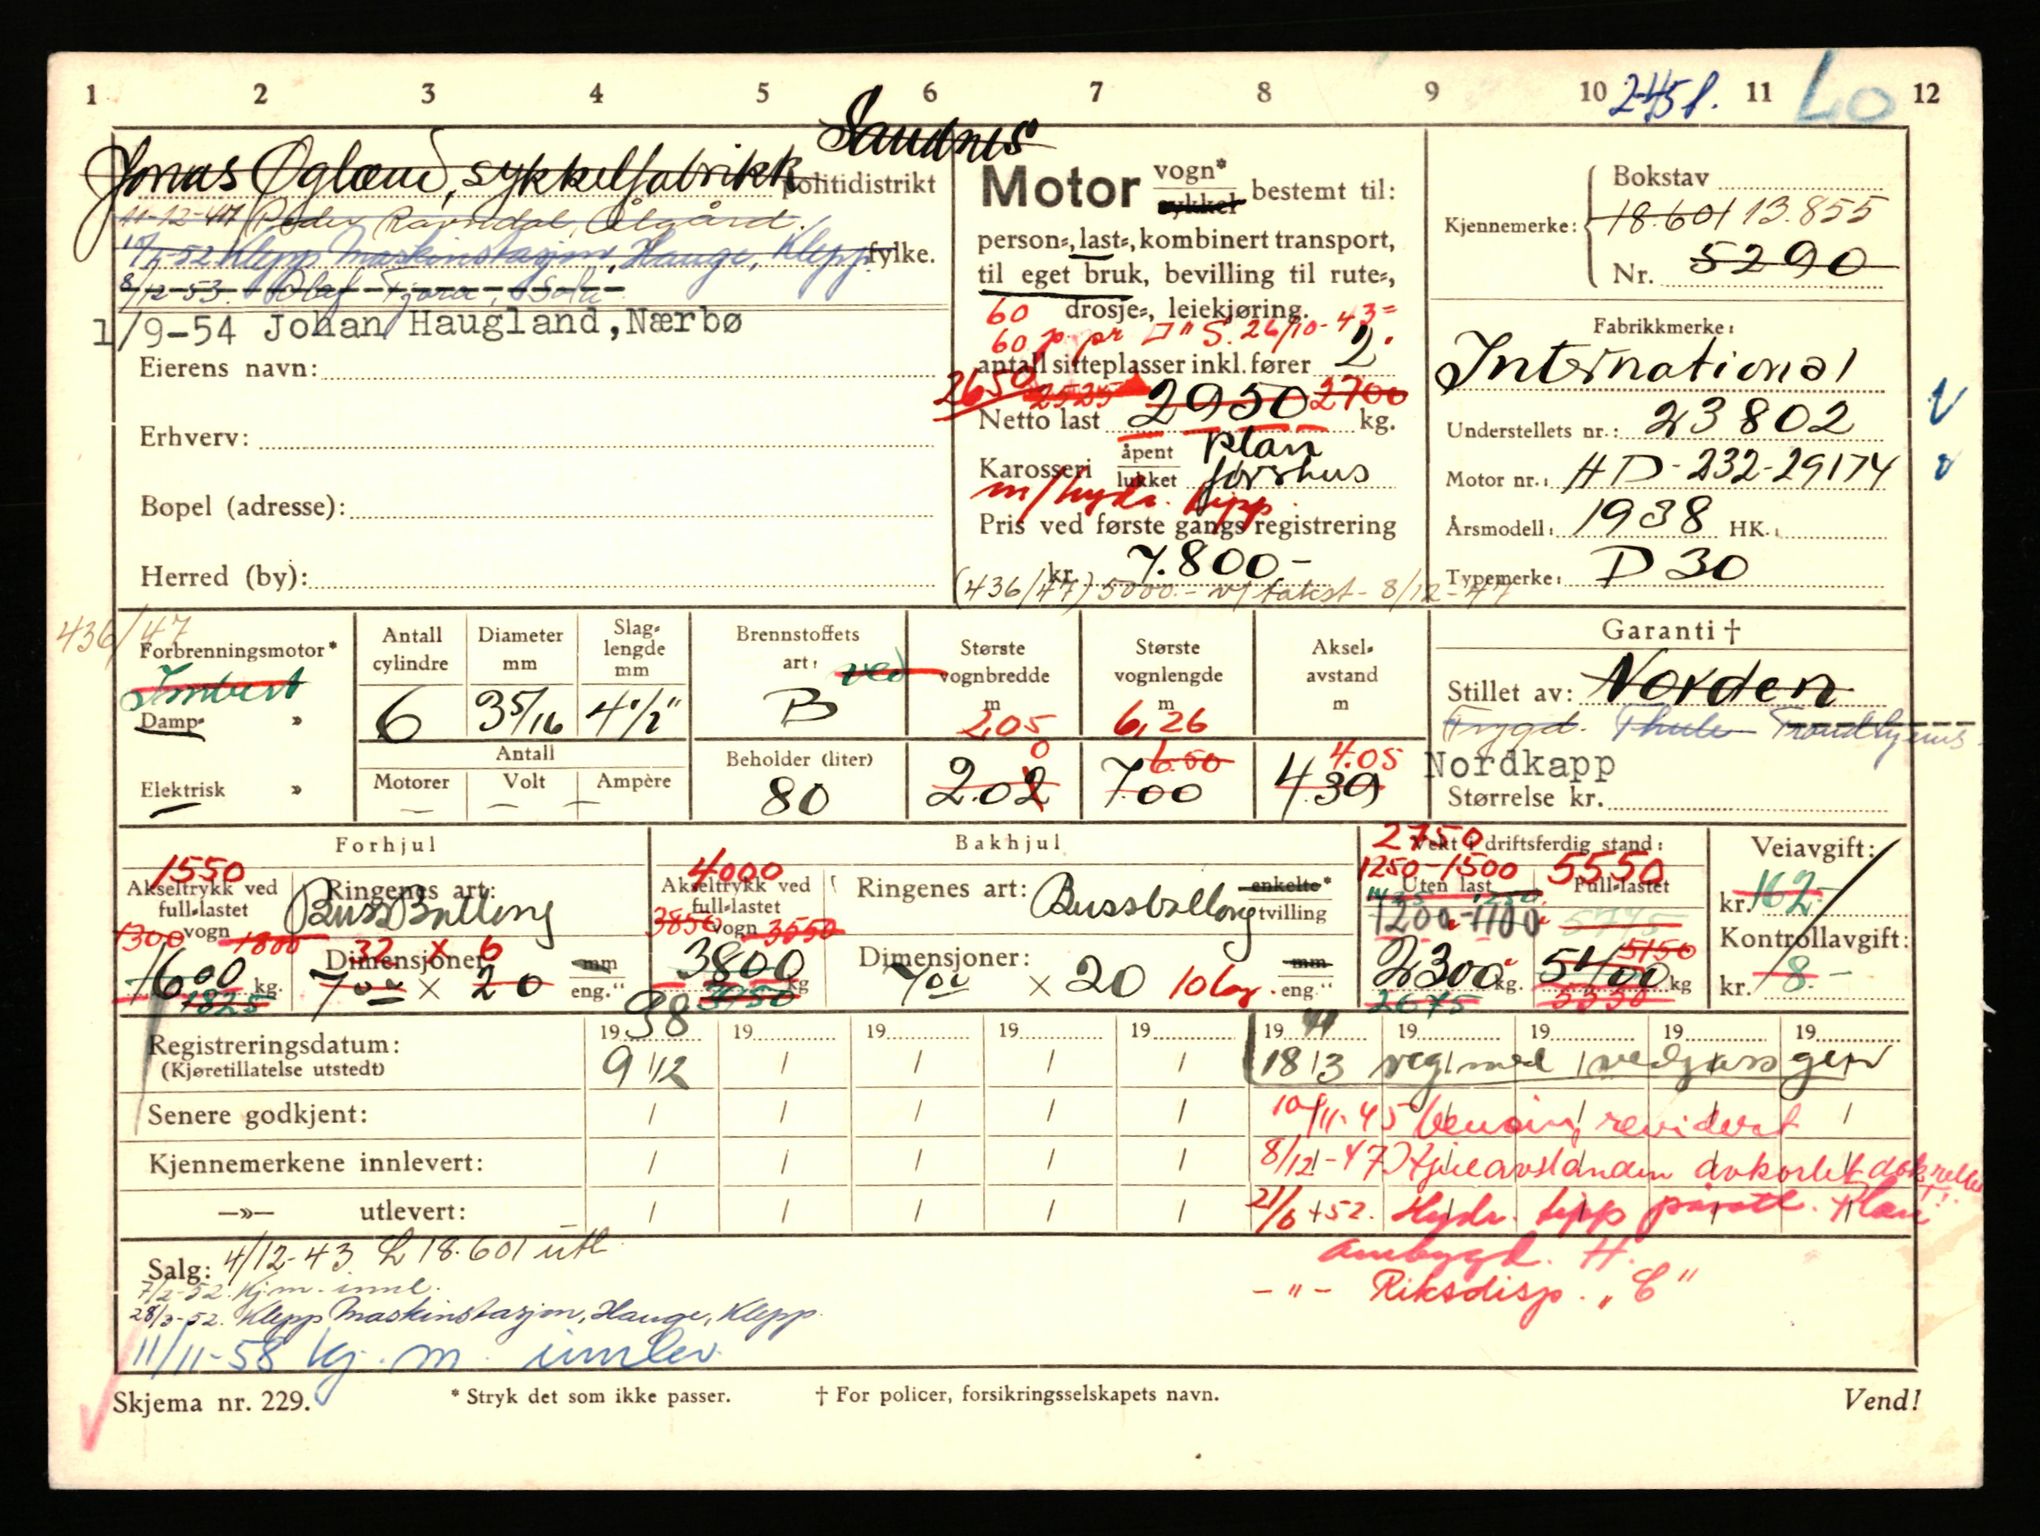 1 2 3 4 5 6 7 8 9 10 245 f. 11 Lo 12
Sandnes
Jonas Øglænd, sykkelfabrikk politidistrikt
11-12-47 Peder Ravndal, Ålgård.
52 Klepp Maskinstasjon, Hauge, Klepp. fylke.
8/12-53. Olaf Tjora, Sola
1/9-54 Johan Haugland, Nærbø
Eierens navn:
Erhverv:
Bopel (adresse):
Herred (by):
Motor vogn* sykkel bestemt til:
person-, last-, kombinert transport,
til eget bruk, bevilling til rute-,
drosje-, leiekjøring.
60
60 p. pr S. 26/10-43
antall sitteplasser inkl. fører 2.
2650 2525 2950 2700
Netto last kg.
Karosseri åpent lukket plan førerhus
m/hydr. tipp
Pris ved første gangs registrering
kr. 7.800-
(436/47) 5000.- v/ takst - 8/12-47
Kjennemerke: Bokstav
18.601 13.855
Nr. 5290
Fabrikkmerke:
International
Understellets nr.: 23802
Motor nr.: HD-232-29174
Årsmodell: 1938 HK.:
Typemerke: D 30
436/47
Forbrenningsmotor*
Imbert
Damp- »
Elektrisk »
Antall cylindre 6
Diameter mm 3 5/16
Slaglengde mm 4 1/2"
Antall
Motorer — Volt — Ampère —
Brennstoffets art: ved
B
Beholder (liter)
80
Største vognbredde m
2,05
0
2.02
Største vognlengde m
6,26
6.50
7.00
Akselavstand m
4.05
4.39
Garanti †
Stillet av: Norden
Trygd. Thule Trondhjems
Nordkapp
Størrelse kr.
Forhjul
1550
Akseltrykk ved full-lastet vogn
1300 1800
1600 kg.
1825
Ringenes art: Buss Balling
Dimensjoner: 32 x 6
7 00 × 20 mm eng."
Bakhjul
4000
Akseltrykk ved full-lastet vogn
3850 3550
3800 kg
3950
Ringenes art: Bussballong enkelte* tvilling
Dimensjoner: 7 00 × 20 10 lag. mm eng."
2750
Vekt i driftsferdig stand:
1250-1500 5550
Uten last Full-lastet
1200-1100 5775
5150
2300 kg. 5400 kg
2675 5550
Veiavgift:
kr. 162-
Kontrollavgift:
kr. 8-
Registreringsdatum:
(Kjøretillatelse utstedt)
19 38 19 19 19 19 19 41 19 19 19 19
9/12 / / / / 18/3 reg med vedgassgen
Senere godkjent: / / / / / 10/11-45 Bensin, revidert
Kjennemerkene innlevert: / / / / / 8/12-47 Hjulavstanden avkortet
—»— utlevert: / / / / / 21/6-52. Hydr. tipp påsatt. Plan
ombygd. H.
-"- Riksdisp. "C"
Salg: 4/12-43 L 18.601 utl
7/2-52. Kj.m. innl.
28/3-52. Klepp Maskinstasjon, Hauge, Klepp.
11/11-58 kj. m. innlev.
Skjema nr. 229. * Stryk det som ikke passer. † For policer, forsikringsselskapets navn. Vend!